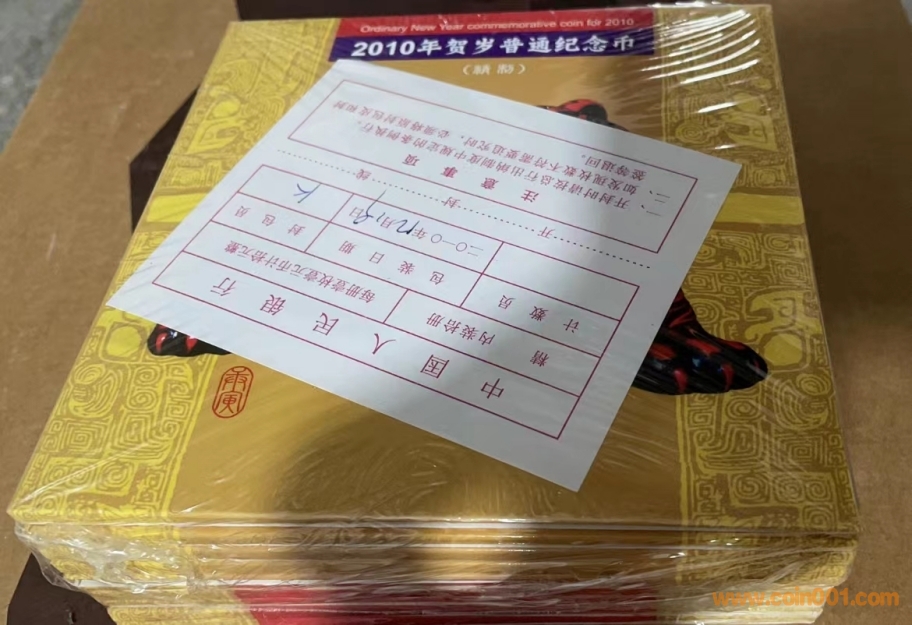 Ordinary New Year commemorative coin for 2010
2010年贺岁普通纪念币
（精制）
中国人民银行
精
内装拾册
每册壹枚壹元币计拾元整
计数员
包装日期
二〇一〇年12月19日
封包员
K
开封线
注意事项
一、开封时请按总行出纳制度中规定的条例执行。
二、如发现枚数不符需要追究时，必须将原封包皮和封
签等退回。
庚寅
www.coin001.com